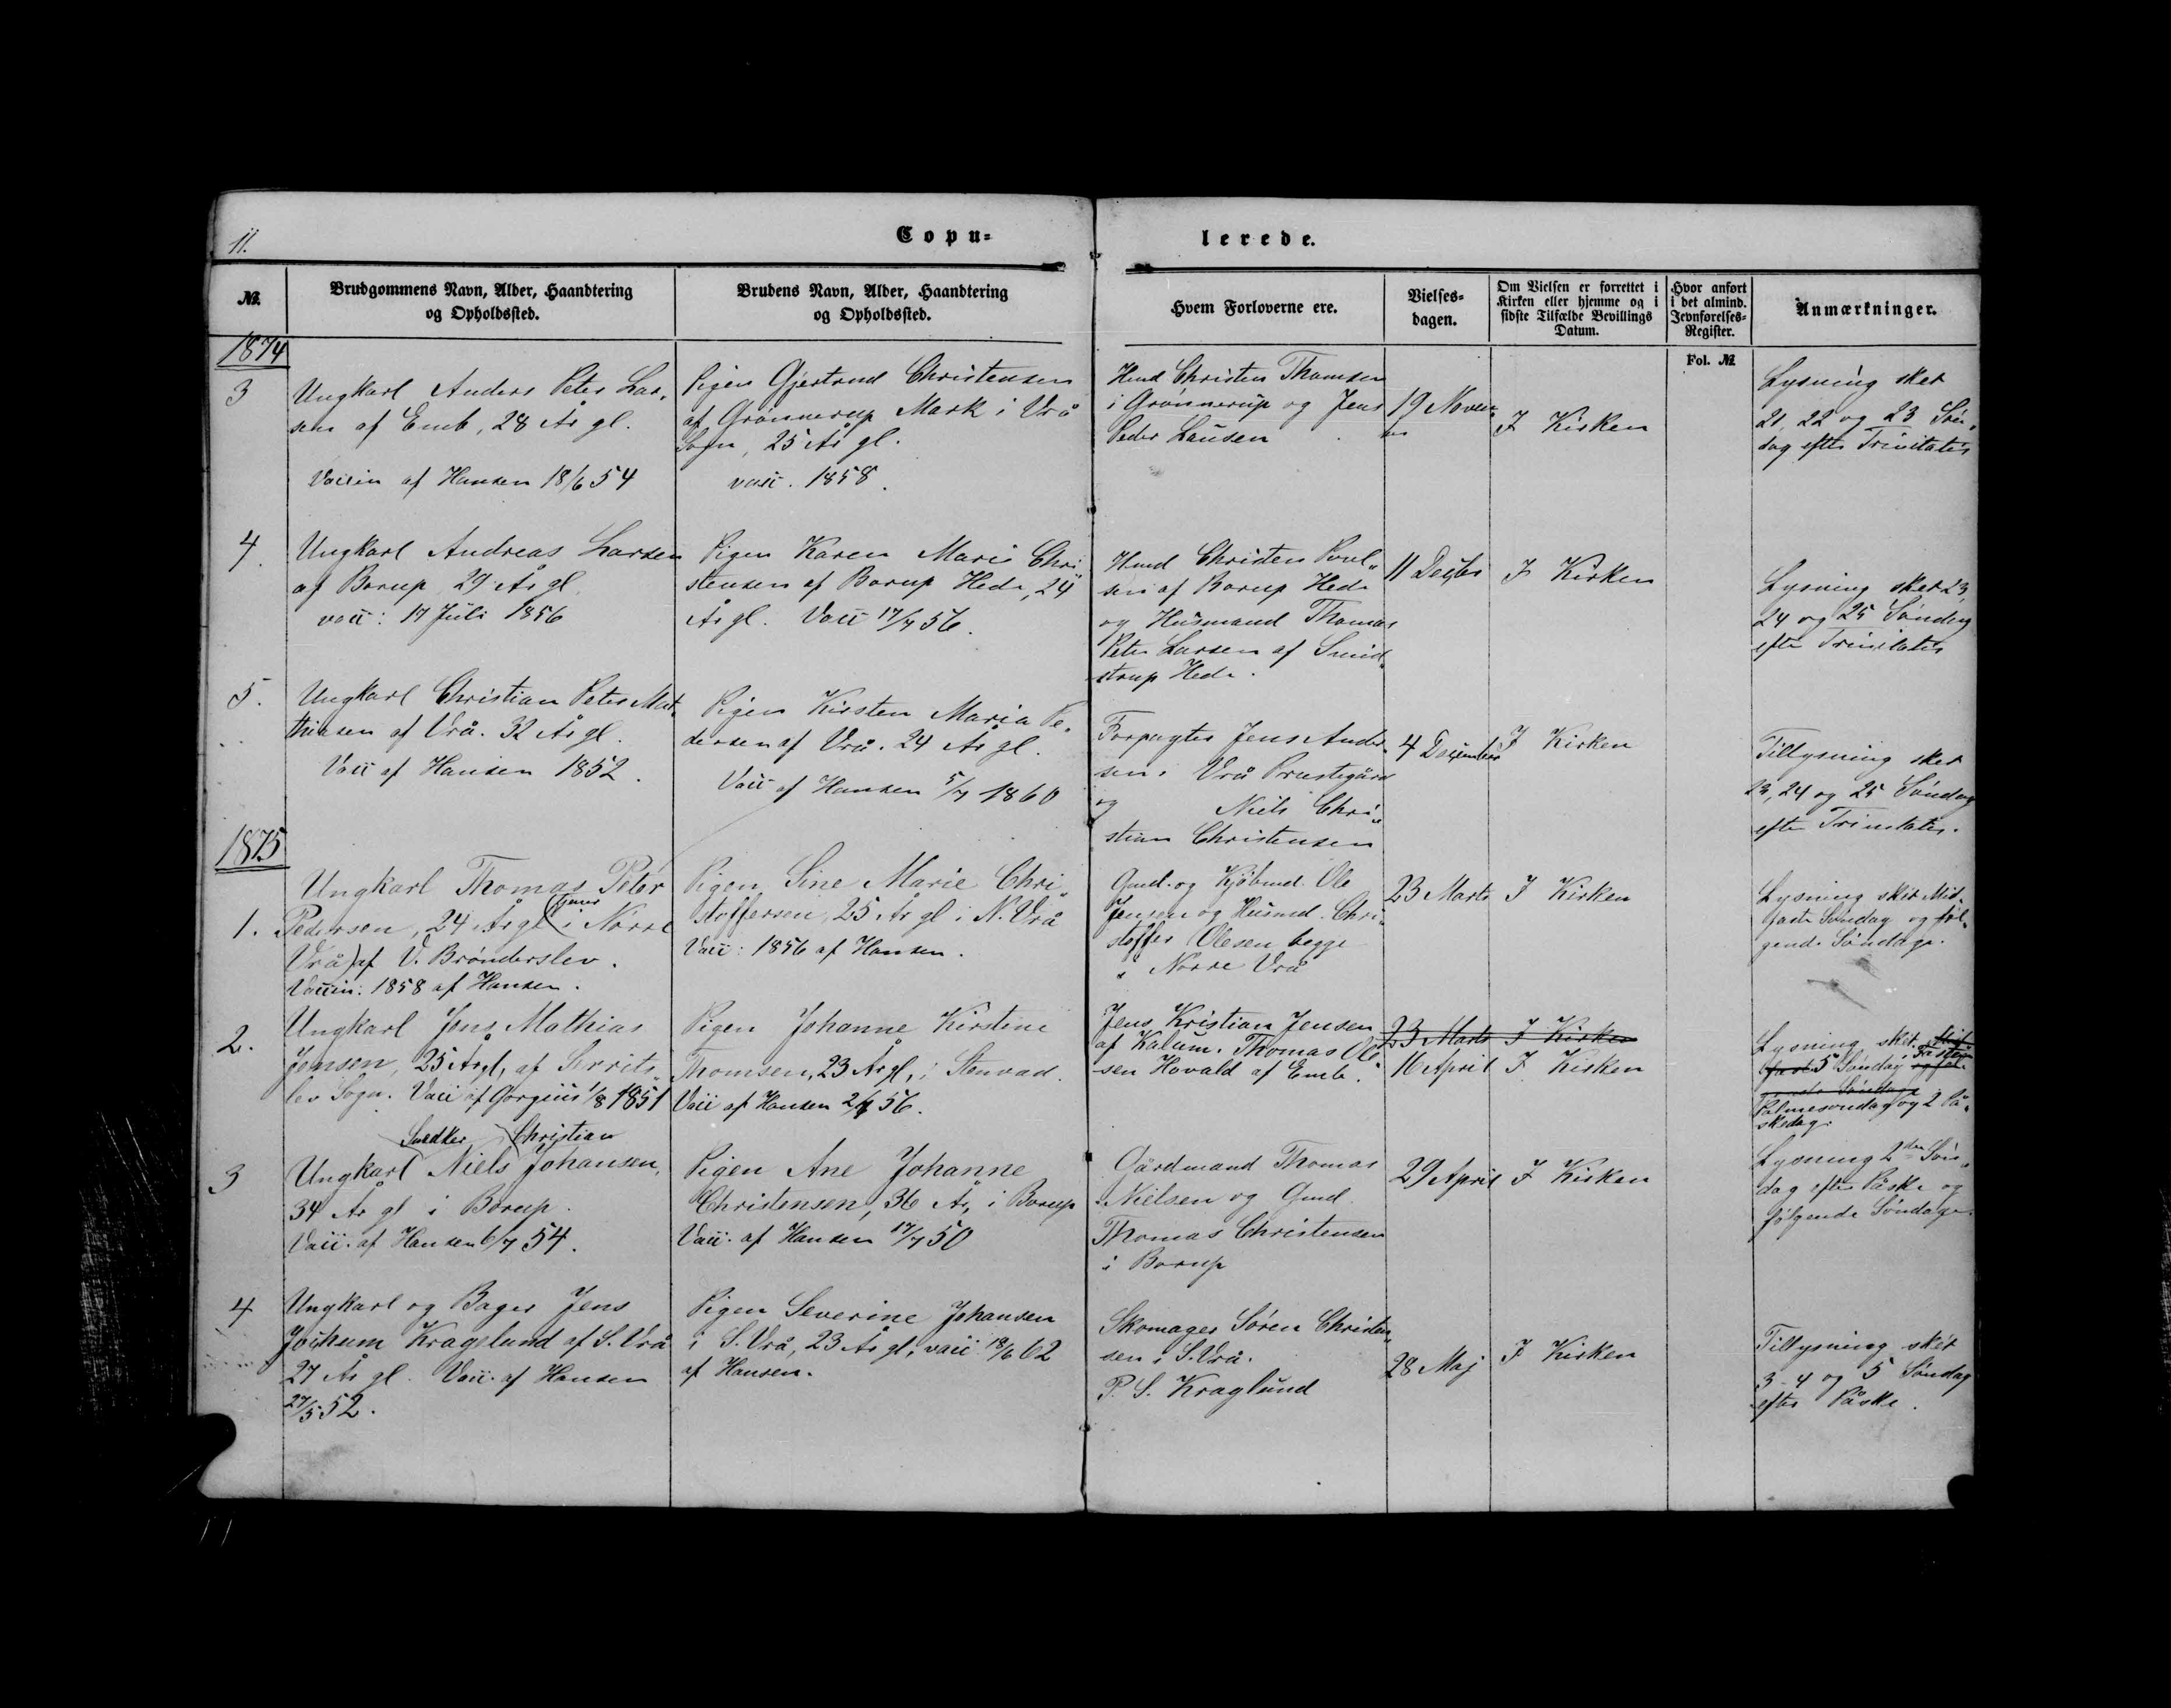 11.
Copu=
lerede.
№
Brudgommens Navn, Alder, Haandtering
og Opholdssted.
Brudens Navn, Alder, Haandtering
og Opholdssted.
Hvem Forloverne ere.
Vielses=
dagen.
Om Vielsen er forrettet i
Kirken eller hjemme og i
sidste Tilfælde Bevillings
Datum.
Hvor anført
i det almind.
Jevnførelses=
Register.
Fol. №
Anmærkninger.
1874
3
Ungkarl Anders Peter Lar-
sen af Emb, 28 År gl.
Vaccin af Hansen 18/6 54
Pigen Gjertrud Christensen
af Grønnerup Mark i Vrå
Sogn, 25 År gl.
vacc. 1858.
Hmd Christen Thomsen
i Grønnerup og Jens
Peder Lausen
19 Novem-
ber
I Kirken
Lysning sket
21, 22 og 23 Søn-
dag efter Trinitatis
4.
Ungkarl Andreas Larsen
af Borup, 29 År gl.
vacc: 17 Juli 1856
Pigen Karen Marie Chri-
stensen af Borup Hede, 24
År gl. Vacc 17/7 56.
Hmd Christen Poul-
sen af Borup Hede
og Husmand Thomas
Peter Larsen af Smid-
strup Hede.
11 Decbr
I Kirken
Lysning sket 23,
24 og 25 Søndag
efter Trinitatis
5.
Ungkarl Christian Peter Mat-
thiasen af Vrå. 32 År gl.
Vacc af Hansen 1852.
Pigen Kirsten Maria Pe-
dersen af Vrå. 24 År gl.
Vacc af Hansen 5/7 1860
Forpagter Jens Ander-
sen i Vrå Præstegård
og Niels Chri-
stian Christensen
4 December
I Kirken
Tillysning sket
23, 24 og 25 Søndag
efter Trinitatis.
1875
1.
Ungkarl Thomas Peter
Pedersen, 24 År gl (tjener i Nørre
Vrå) af V. Brønderslev.
Vaccin: 1858 af Hansen.
Pigen Sine Marie Chri-
stoffersen, 25 År gl i N. Vrå
Vacc: 1856 af Hansen.
Gmd. og Kjøbmd. Ole
Jensen og Husmd. Chri-
stoffer Olesen begge
i Nørre Vrå
23 Marts
I Kirken
Lysning sket Mid-
faste Søndag og føl-
gende Søndage.
2.
Ungkarl Jens Mathias
Jensen, 25 År gl, af Serrits-
lev Sogn. Vacc af Jørgius 1/8 1851
Pigen Johanne Kirstine
Thomsen, 23 År gl, i Stenvad.
Vacc af Hansen 2/7 56.
Jens Kristian Jensen
af Kalum. Thomas Ole-
sen Hovald af Emb.
23 Marts I Kirken
16 April
I Kirken
Lysning sket Mid-
faste 5 Søndag i Fasten og føl-
gende Søndag
Palmesøndag og 2 På-
skedag.
3
Ungkarl Snedker Niels Christian Johansen,
34 År gl i Borup.
Vacc. af Hansen 6/7 54.
Pigen Ane Johanne
Christensen, 36 År, i Borup
Vacc. af Hansen 17/7 50
Gårdmand Thomas
Nielsen og Gmd.
Thomas Christensen
i Borup
29 April
I Kirken
Lysning 2den Søn-
dag efter Påske og
følgende Søndage.
4
Ungkarl og Bager Jens
Jochum Kragelund af S. Vrå
27 År gl. Vacc. af Hansen
27/5 52.
Pigen Severine Johansen
i S. Vrå, 23 År gl, vacc 18/6 62
af Hansen.
Skomager Søren Christen-
sen i S. Vrå.
P. S. Kraglund
28 Maj
I Kirken
Tillysning sket
3 - 4 og 5 Søndag
efter Påske.